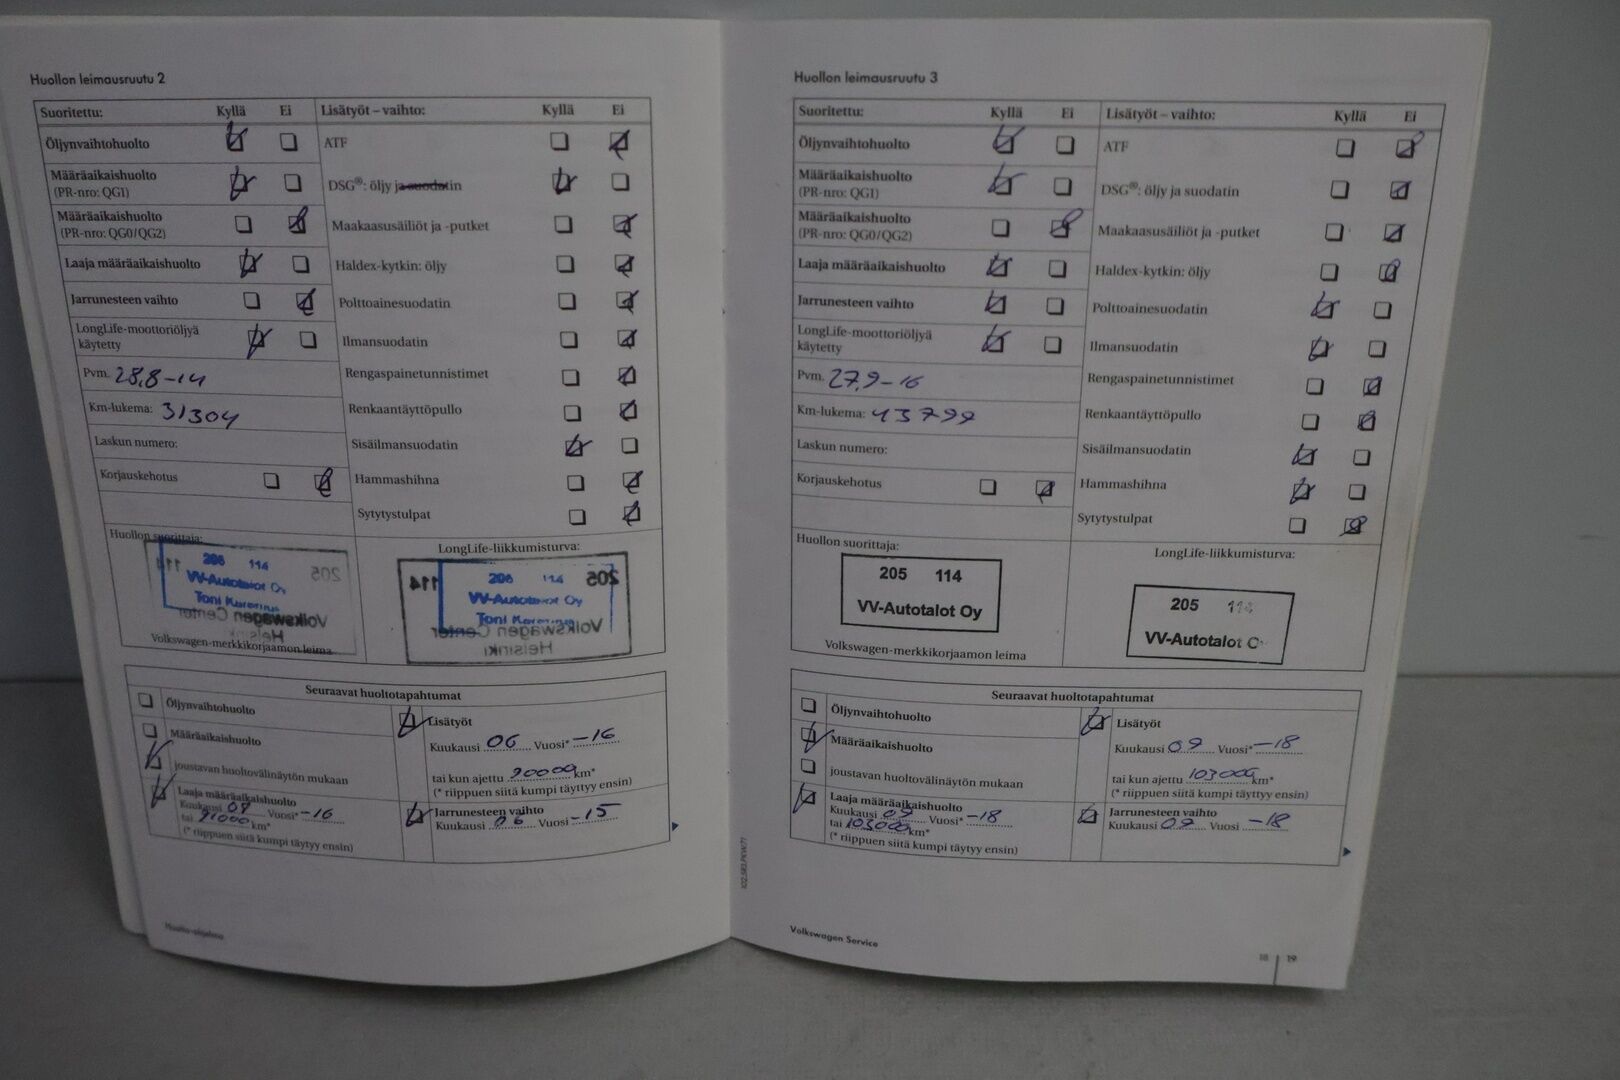 Huollon leimausruutu 2
Suoritettu: Kyllä Ei Lisätyöt – vaihto: Kyllä Ei
Öljynvaihtohuolto
Määräaikaishuolto
(PR-nro: QG1)
Määräaikaishuolto
(PR-nro: QG0/QG2)
Laaja määräaikaishuolto
Jarrunesteen vaihto
LongLife-moottoriöljyä
käytetty
Pvm. 28,8-14
Km-lukema: 31304
Laskun numero:
Korjauskehotus
ATF
DSG®: öljy ja suodatin
Maakaasusäiliöt ja -putket
Haldex-kytkin: öljy
Polttoainesuodatin
Ilmansuodatin
Rengaspainetunnistimet
Renkaantäyttöpullo
Sisäilmansuodatin
Hammashihna
Sytytystulpat
Huollon suorittaja:
206 114
VV-Autotalot Oy
Toni
205 114
Volkswagen Center
Helsinki
Volkswagen-merkkikorjaamon leima
LongLife-liikkumisturva:
206 114
VV-Autotalot Oy
Toni
205 114
Volkswagen Center
Helsinki
Seuraavat huoltotapahtumat
Öljynvaihtohuolto
Määräaikaishuolto
joustavan huoltovälinäytön mukaan
Laaja määräaikaishuolto
Kuukausi Vuosi* -16
tai 91000 km*
(* riippuen siitä kumpi täytyy ensin)
Lisätyöt
Kuukausi 06 Vuosi* -16
tai kun ajettu 90000 km*
(* riippuen siitä kumpi täyttyy ensin)
Jarrunesteen vaihto
Kuukausi 06 Vuosi -15
Huolto-ohjelma
Huollon leimausruutu 3
Suoritettu: Kyllä Ei Lisätyöt – vaihto: Kyllä Ei
Öljynvaihtohuolto
Määräaikaishuolto
(PR-nro: QG1)
Määräaikaishuolto
(PR-nro: QG0/QG2)
Laaja määräaikaishuolto
Jarrunesteen vaihto
LongLife-moottoriöljyä
käytetty
Pvm. 27,9-16
Km-lukema: 43799
Laskun numero:
Korjauskehotus
ATF
DSG®: öljy ja suodatin
Maakaasusäiliöt ja -putket
Haldex-kytkin: öljy
Polttoainesuodatin
Ilmansuodatin
Rengaspainetunnistimet
Renkaantäyttöpullo
Sisäilmansuodatin
Hammashihna
Sytytystulpat
Huollon suorittaja:
205 114
VV-Autotalot Oy
Volkswagen-merkkikorjaamon leima
LongLife-liikkumisturva:
205 114
VV-Autotalot
Seuraavat huoltotapahtumat
Öljynvaihtohuolto
Määräaikaishuolto
joustavan huoltovälinäytön mukaan
Laaja määräaikaishuolto
Kuukausi 09 Vuosi* -18
tai 103000 km*
(* riippuen siitä kumpi täytyy ensin)
Lisätyöt
Kuukausi 09 Vuosi* -18
tai kun ajettu 103000 km*
(* riippuen siitä kumpi täyttyy ensin)
Jarrunesteen vaihto
Kuukausi 09 Vuosi -18
Volkswagen Service
18 19